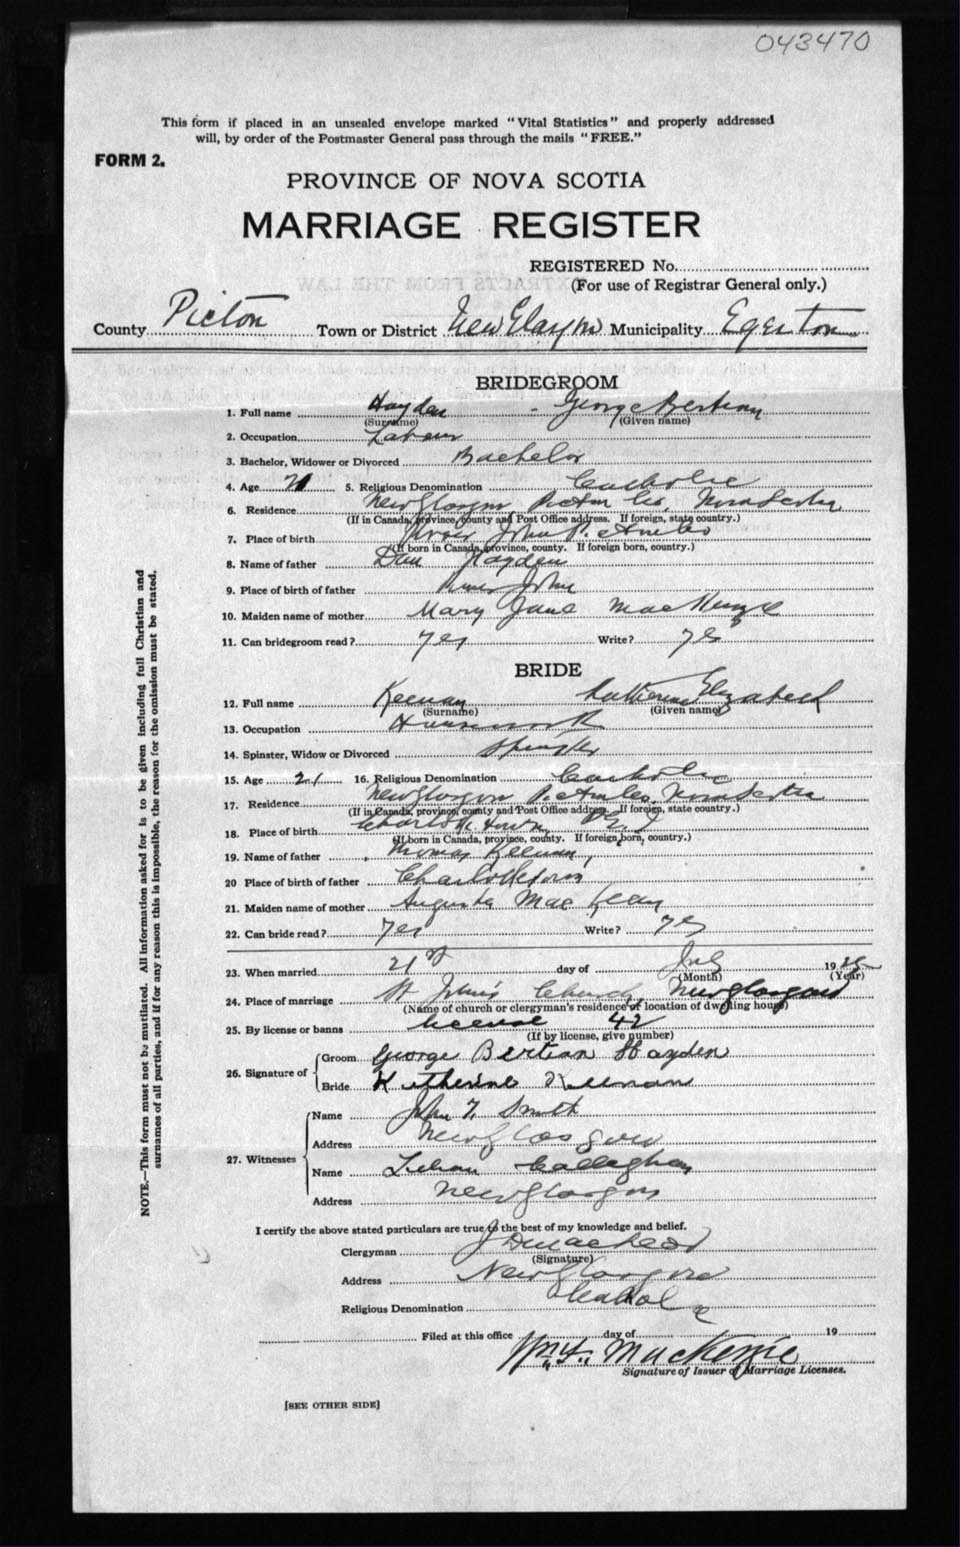 043470
This form if placed in an unsealed envelope marked "Vital Statistics" and properly addressed
will, by order of the Postmaster General pass through the mails "FREE."
FORM 2.
PROVINCE OF NOVA SCOTIA
MARRIAGE REGISTER
REGISTERED No.
(For use of Registrar General only.)
County Pictou Town or District New Glasgow Municipality Egerton
BRIDEGROOM
1. Full name Hayden George Bertian
(Surname) (Given name)
2. Occupation Labour
3. Bachelor, Widower or Divorced Bachelor
4. Age 21 5. Religious Denomination Catholic
6. Residence New Glasgow Pictou Co. Nova Scotia
(If in Canada, province, county and Post Office address. If foreign, state country.)
7. Place of birth River John Pictou Co
(If born in Canada, province, county. If foreign born, country.)
8. Name of father Dan Hayden
9. Place of birth of father River John
10. Maiden name of mother Mary Jane MacKenzie
11. Can bridegroom read? yes Write? yes
BRIDE
12. Full name Keenan Katherine Elizabeth
(Surname) (Given name)
13. Occupation Housework
14. Spinster, Widow or Divorced Spinster
15. Age 21 16. Religious Denomination Catholic
17. Residence New Glasgow Pictou Co, Nova Scotia
(If in Canada, province, county and Post Office address. If foreign, state country.)
18. Place of birth Charlottetown P E I
(If born in Canada, province, county. If foreign born, country.)
19. Name of father Thomas Keenan
20 Place of birth of father Charlottetown
21. Maiden name of mother Augusta MacLean
22. Can bride read? yes Write? yes
23. When married 21st day of July 19
(Month) (Year)
24. Place of marriage St John's Church, New Glasgow
(Name of church or clergyman's residence or location of dwelling house)
25. By license or banns license 42
(If by license, give number)
26. Signature of Groom George Bertian Hayden
Bride Katherine Keenan
27. Witnesses Name John F. Smith
Address New Glasgow
Name Lilian Callaghan
Address New Glasgow
I certify the above stated particulars are true to the best of my knowledge and belief.
Clergyman J D MacLeod
(Signature)
Address New Glasgow
Religious Denomination Catholic
Filed at this office day of 19
Wm. F. MacKenzie
Signature of Issuer of Marriage Licenses.
[SEE OTHER SIDE]
NOTE.—This form must not be mutilated. All information asked for is to be given including full Christian and
surnames of all parties, and if for any reason this is impossible, the reason for the omission must be stated.